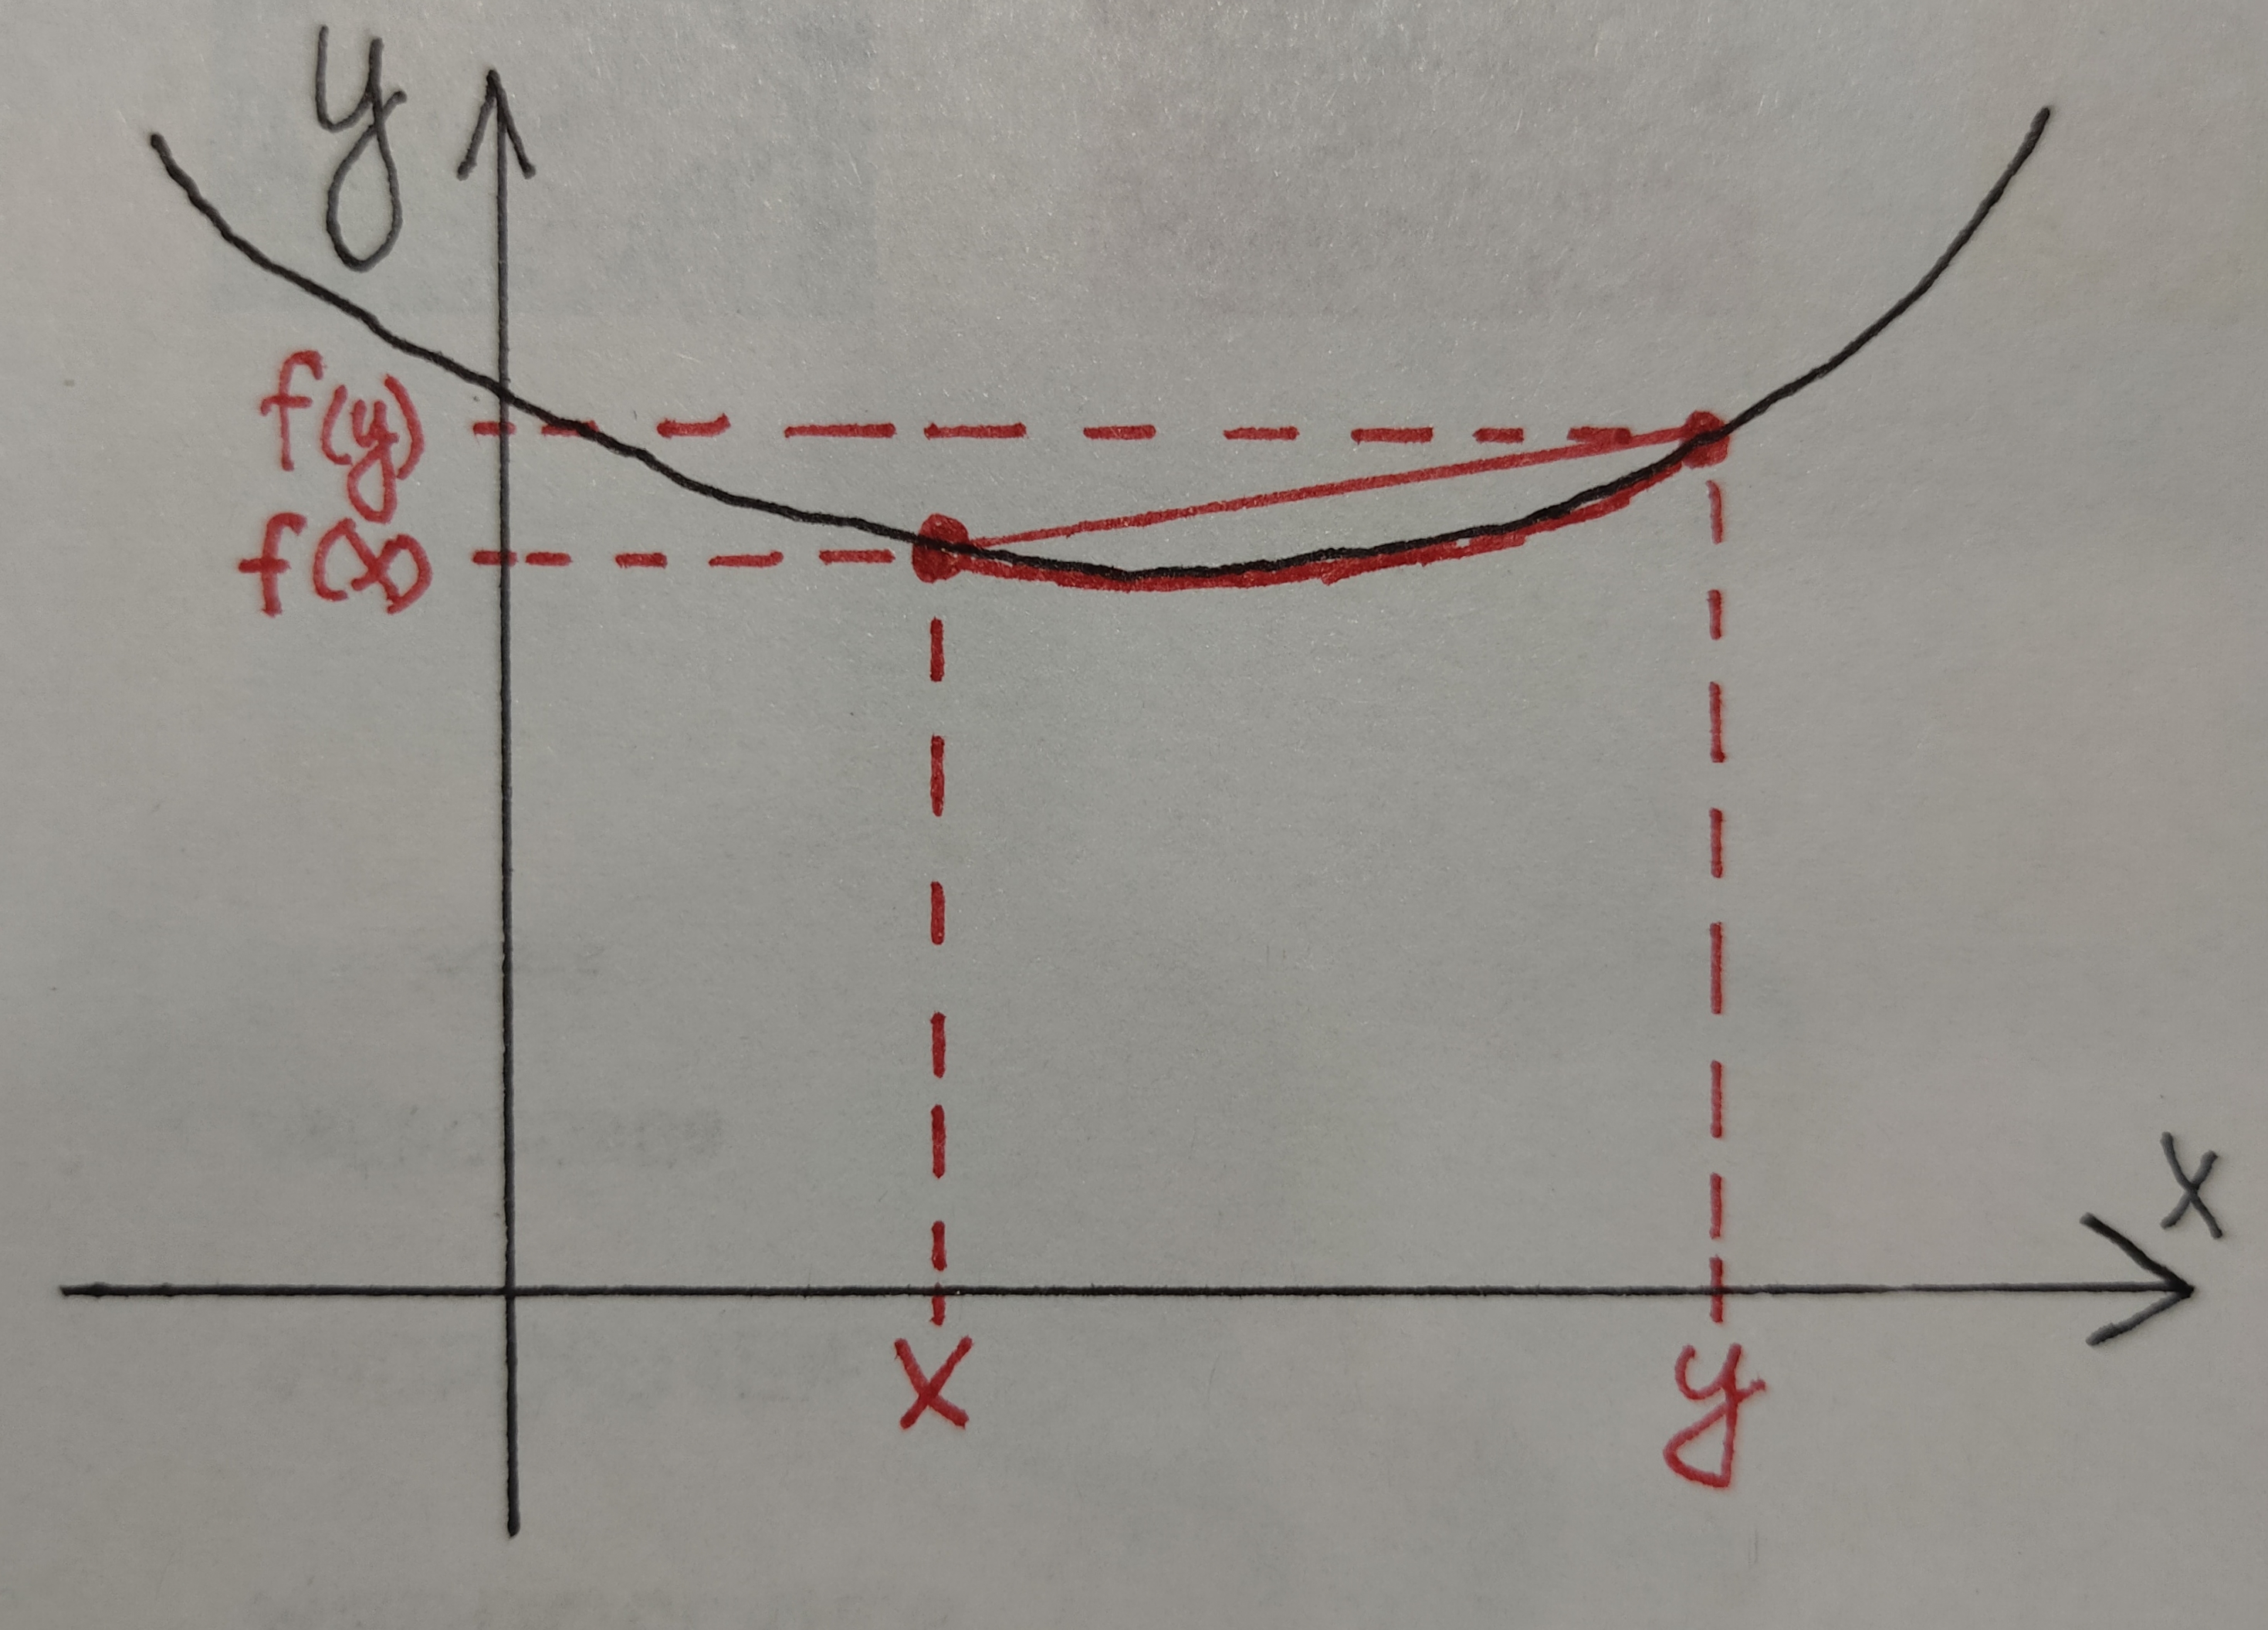 y
f(y)
f(x)
x
x
y